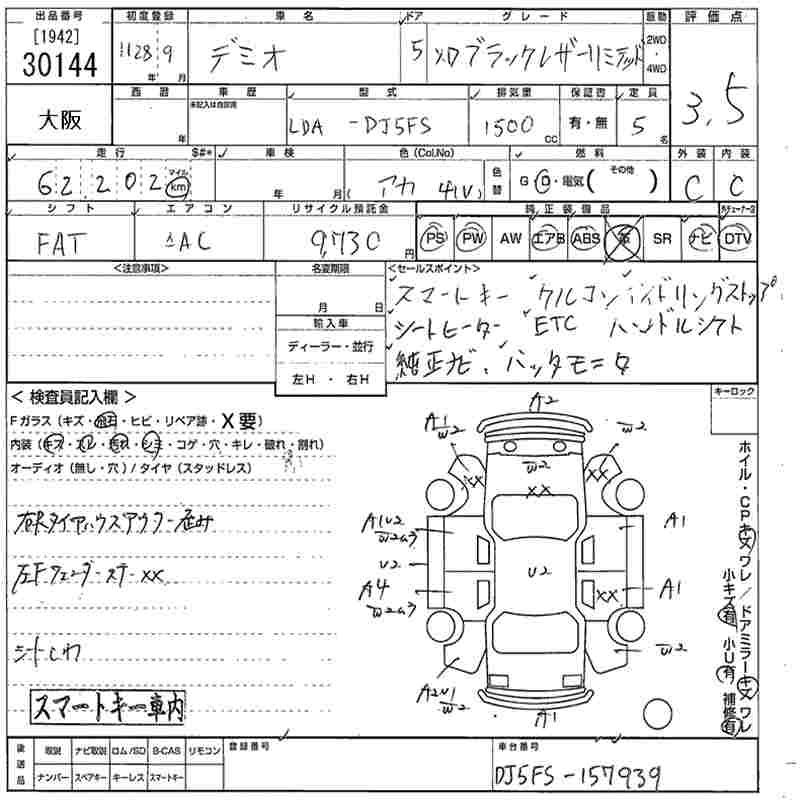 出品番号 初度登録 車名 ドア グレード 駆動 評価点
[1942]
30144 H28 9 年 月 デミオ 5 XDブラックレザーリミテッド 2WD・4WD 3.5
大阪 西暦 年 車歴 未記入は自家用 型式 LDA -DJ5FS 排気量 1500 cc 保証書 有・無 定員 5 名
走行 $#* 車検 色(Col.No) 燃料 外装 内装
62,202 マイル km 年 月 ( アカ 41V ) 色替 G D・電気( その他 ) C C
シフト エアコン リサイクル預託金 純正装備品
FAT AAC 9,730 円 PS PW AW エアB ABS 革 SR ナビ DTV
<注意事項> 名変期限 <セールスポイント>
月 日 スマートキー クルコン アイドリングストップ
輸入車 シートヒーター ETC ハンドルシフト
ディーラー・並行 純正ナビ、バックモニタ
左H ・ 右H
<検査員記入欄> キーロック
Fガラス(キズ・飛石・ヒビ・リペア跡・X要)
内装(キズ・スレ・汚れ・シミ・コゲ・穴・キレ・破れ・割れ)
オーディオ(無し・穴)/タイヤ(スタッドレス)
右Rタイヤハウスアウター歪み
左FフェンダーステーXX
シートしわ
スマートキー車内
A2
A1 W2 W2
W2
XX XX XX
A1U2 W2a3 A1
U2 U2
A4 W2a3 XX A1
W2
A2U1 W2 A1
ホイル・CPキズワレ/ドアミラーキズワレ
小キズ有 小U有 補修有
後送品 取説 ナビ取説 ロム/SD B-CAS リモコン 登録番号 車台番号
ナンバー スペアキー キーレス スマートキー DJ5FS-157939